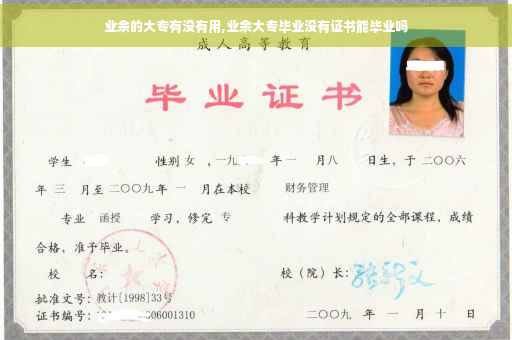 业余的大专有没有用,业余大专毕业没有证书能毕业吗
成人高等教育
毕业证书
学生 性别 女 ,一九 年一 月八 日生,于二〇〇六
年 三 月至二〇〇九年 一 月在本校 财务管理
专业 函授 学习,修完 专 科教学计划规定的全部课程,成绩
合格,准予毕业。
校 名: 校(院)长:
批准文号:教计[1998]33号
证书编号: 06001310 二〇〇九 年 一 月 十 日